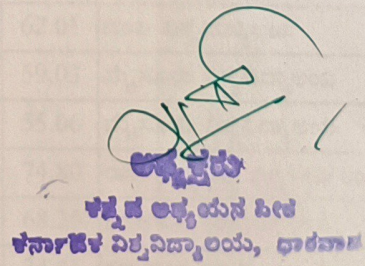 ಅಧ್ಯಕ್ಷರು
ಕನ್ನಡ ಅಧ್ಯಯನ ಪೀಠ
ಕರ್ನಾಟಕ ವಿಶ್ವವಿದ್ಯಾಲಯ, ಧಾರವಾಡ